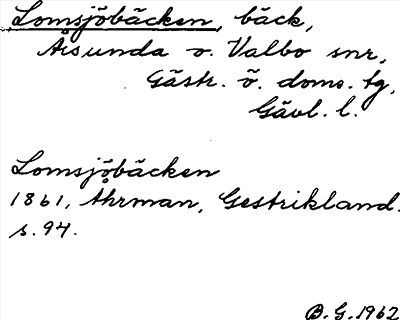 Lomsjöbäcken, bäck,
Årsunda o. Valbo snr,
Gästr. ö. doms. tg,
Gävl. l.
Lomsjöbäcken
1861, Ahrman, Gestrikland.
s. 94.
B. G. 1962